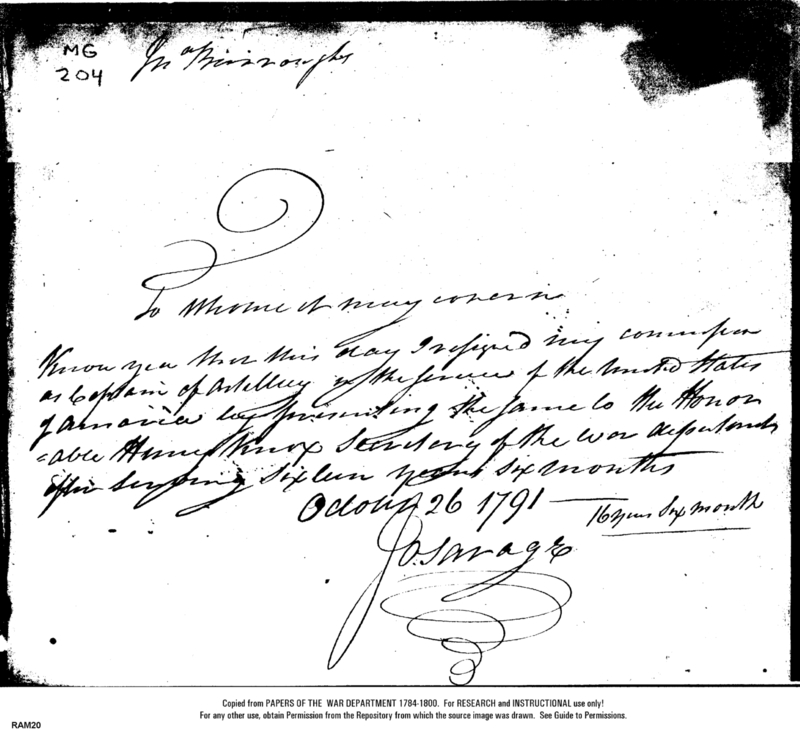 MG
204
Jno Burroughs
To Whome it may concern
Know yea that this day I resigned my commission
as Captain of Artillery in the service of the United States
of America by presenting the same to the Honor
=able Henry Knox Secretary of the War department
after serving sixteen years six months
October 26 1791
16 years Six month
Jo. Savage
Copied from PAPERS OF THE WAR DEPARTMENT 1784-1800. For RESEARCH and INSTRUCTIONAL use only!
For any other use, obtain Permission from the Repository from which the source image was drawn. See Guide to Permissions.
RAM20